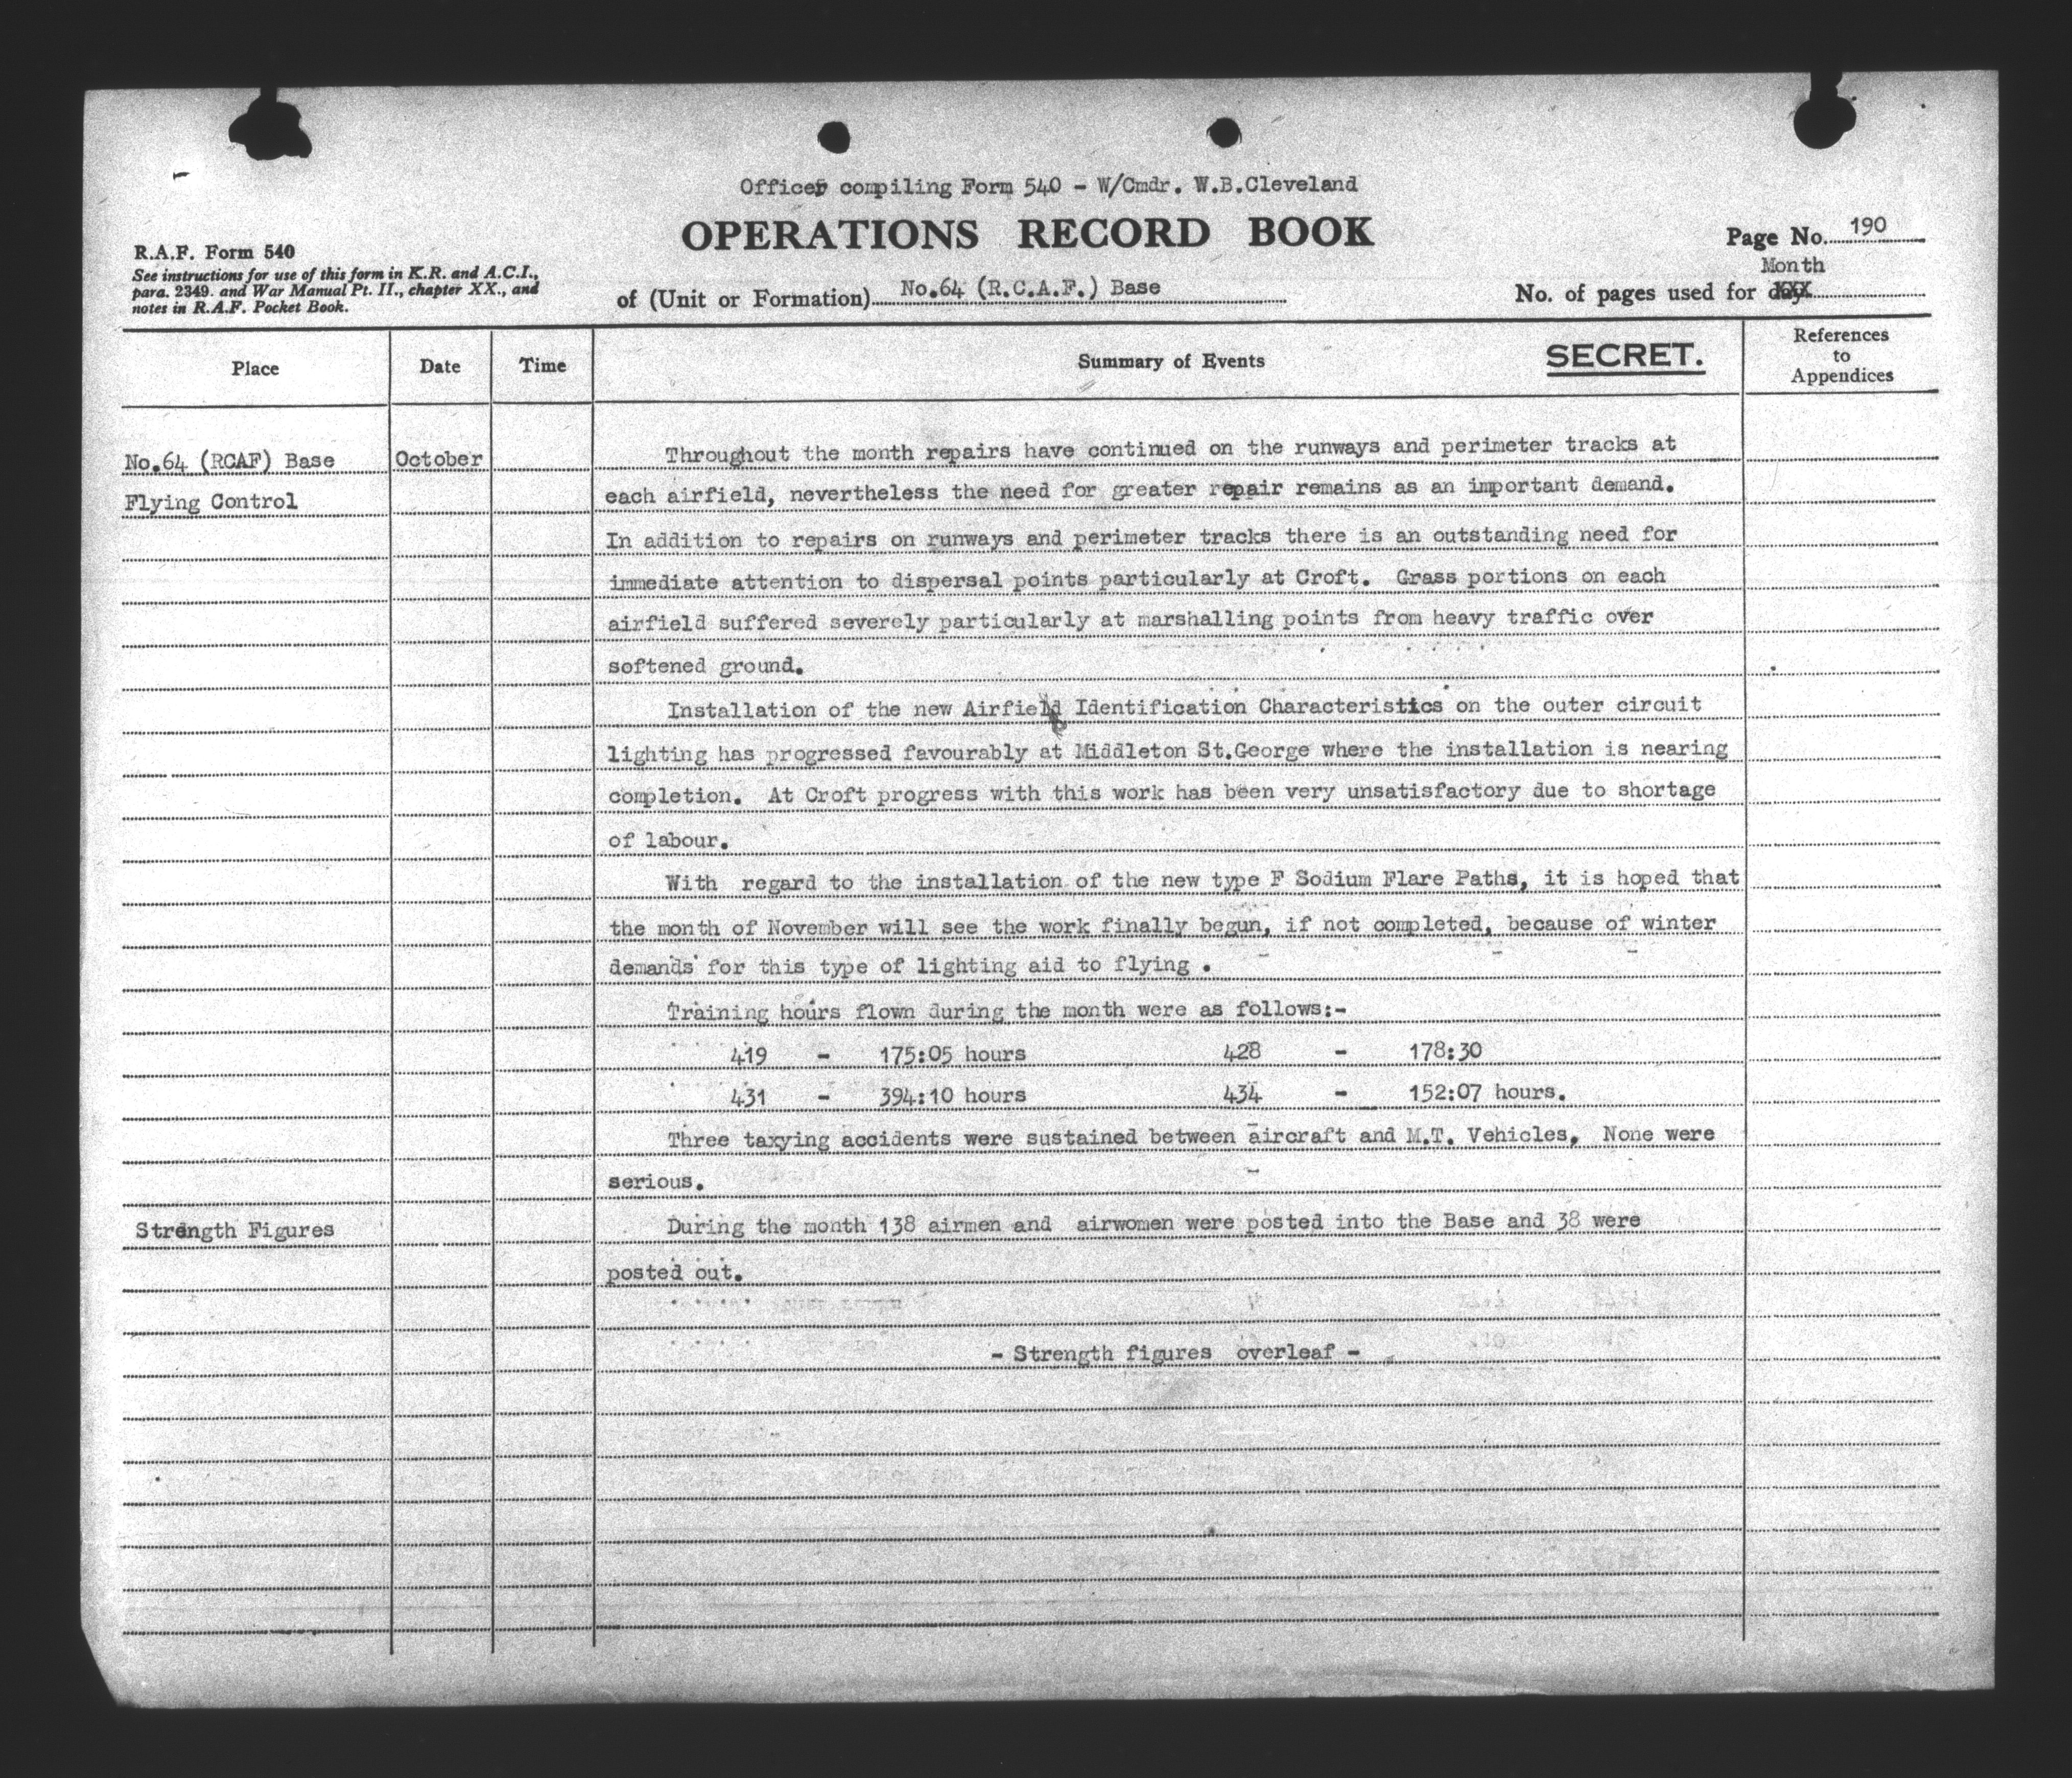 Officer compiling Form 540 - W/Cmdr. W.B.Cleveland
OPERATIONS RECORD BOOK
R.A.F. Form 540
See instructions for use of this form in K.R. and A.C.I.,
para. 2349. and War Manual Pt. II., chapter XX., and
notes in R.A.F. Pocket Book.
of (Unit or Formation) No.64 (R.C.A.F.) Base
Page No. 190
Month
No. of pages used for day
Place Date Time Summary of Events SECRET. References to Appendices
No.64 (RCAF) Base October Throughout the month repairs have continued on the runways and perimeter tracks at
Flying Control each airfield, nevertheless the need for greater repair remains as an important demand.
In addition to repairs on runways and perimeter tracks there is an outstanding need for
immediate attention to dispersal points particularly at Croft. Grass portions on each
airfield suffered severely particularly at marshalling points from heavy traffic over
softened ground.
Installation of the new Airfield Identification Characteristics on the outer circuit
lighting has progressed favourably at Middleton St.George where the installation is nearing
completion. At Croft progress with this work has been very unsatisfactory due to shortage
of labour.
With regard to the installation of the new type F Sodium Flare Paths, it is hoped that
the month of November will see the work finally begun, if not completed, because of winter
demands for this type of lighting aid to flying .
Training hours flown during the month were as follows:-
419 - 175:05 hours 428 - 178:30
431 - 394:10 hours 434 - 152:07 hours.
Three taxying accidents were sustained between aircraft and M.T. Vehicles. None were
serious.
Strength Figures During the month 138 airmen and airwomen were posted into the Base and 38 were
posted out.
- Strength figures overleaf -